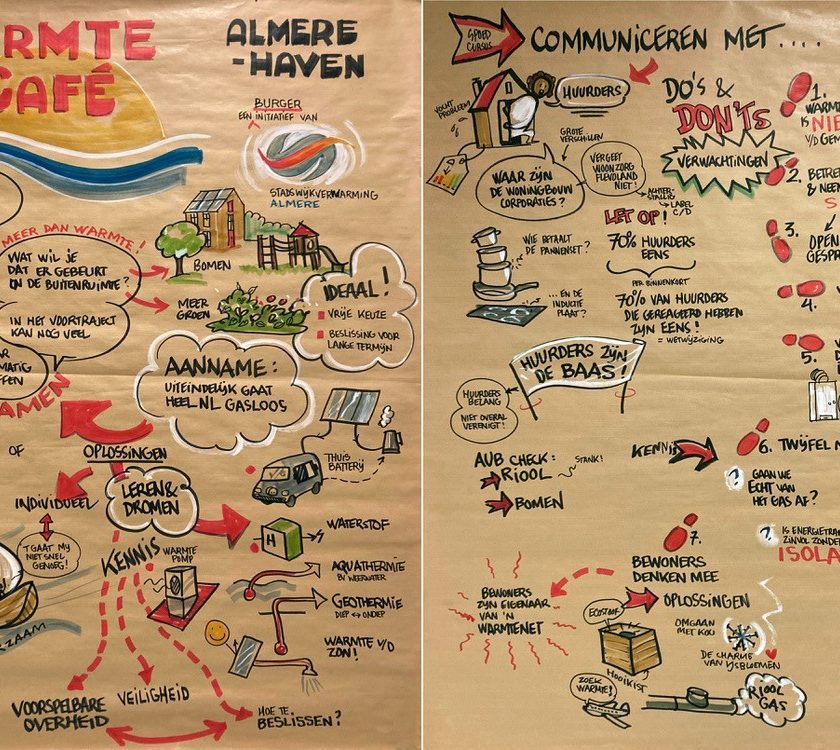 ARMTE
CAFÉ
ALMERE
-HAVEN
BURGER
EEN INITIATIEF VAN
STADSWIJKVERWARMING
ALMERE
MEER DAN WARMTE!
WAT WIL JE
DAT ER GEBEURT
IN DE BUITENRUIMTE?
IN HET VOORTRAJECT
KAN NOG VEEL
BOMEN
MEER
GROEN
IDEAAL!
VRIJE KEUZE
BESLISSING VOOR
LANGE TERMIJN
AANNAME:
UITEINDELIJK GAAT
HEEL NL GASLOOS
AMEN
OF
OPLOSSINGEN
INDIVIDUEEL
LEREN &
DROMEN
THUIS
BATTERIJ
'T GAAT MIJ
NIET SNEL
GENOEG!
KENNIS
WARMTE
POMP
H
WATERSTOF
AQUATHERMIE
BV WEERWATER
GEOTHERMIE
DIEP ↔ ONDIEP
WARMTE V/D
ZON!
RZAAM
VOORSPELBARE
OVERHEID
VEILIGHEID
HOE TE
BESLISSEN?
SPOED
CURSUS
COMMUNICEREN MET....
VOCHT
PROBLEEM
HUURDERS
GROTE
VERSCHILLEN
WAAR ZIJN
DE WONINGBOUW
CORPORATIES?
VERGEET
WOONZORG
FLEVOLAND
NIET!
ACHTER-
STALLIG
LABEL
C/D
DO'S &
DON'TS
VERWACHTINGEN
LET OP!
70% HUURDERS
EENS
PER BINNENKORT
70% VAN HUURDERS
DIE GEREAGEERD HEBBEN
ZIJN EENS!
= WETWIJZIGING
WIE BETAALT
DE PANNENSET?
... EN DE
INDUCTIE
PLAAT?
HUURDERS ZIJN
DE BAAS!
HUURDERS
BELANG
NIET OVERAL
VERENIGT!
AUB CHECK:
RIOOL
STANK!
BOMEN
KENNIS
1.
WARMT
IS NIE
V/D GEM
2. BETRE
& NEE
S
3.
OPEN
GESPR
4.
5.
6. TWIJFEL N
GAAN WE
ECHT VAN
HET GAS AF?
IS ENERGIETRA
ZINVOL ZONDER
ISOLA
7.
BEWONERS
DENKEN MEE
OPLOSSINGEN
BEWONERS
ZIJN EIGENAAR
VAN 'N
WARMTENET
ECOSTOOF
HOOIKIST
OMGAAN
MET KOU
DE CHARME
VAN IJSBLOEMEN
ZOEK
WARMTE!
RIOOL
GAS